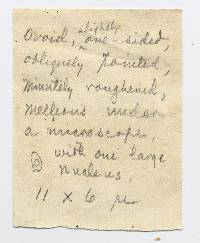 Ovoid, slightly one-sided,
obliquely pointed,
minutely roughened,
melleous under
a microscope,
with one large
nucleus,
11 x 6 µ.